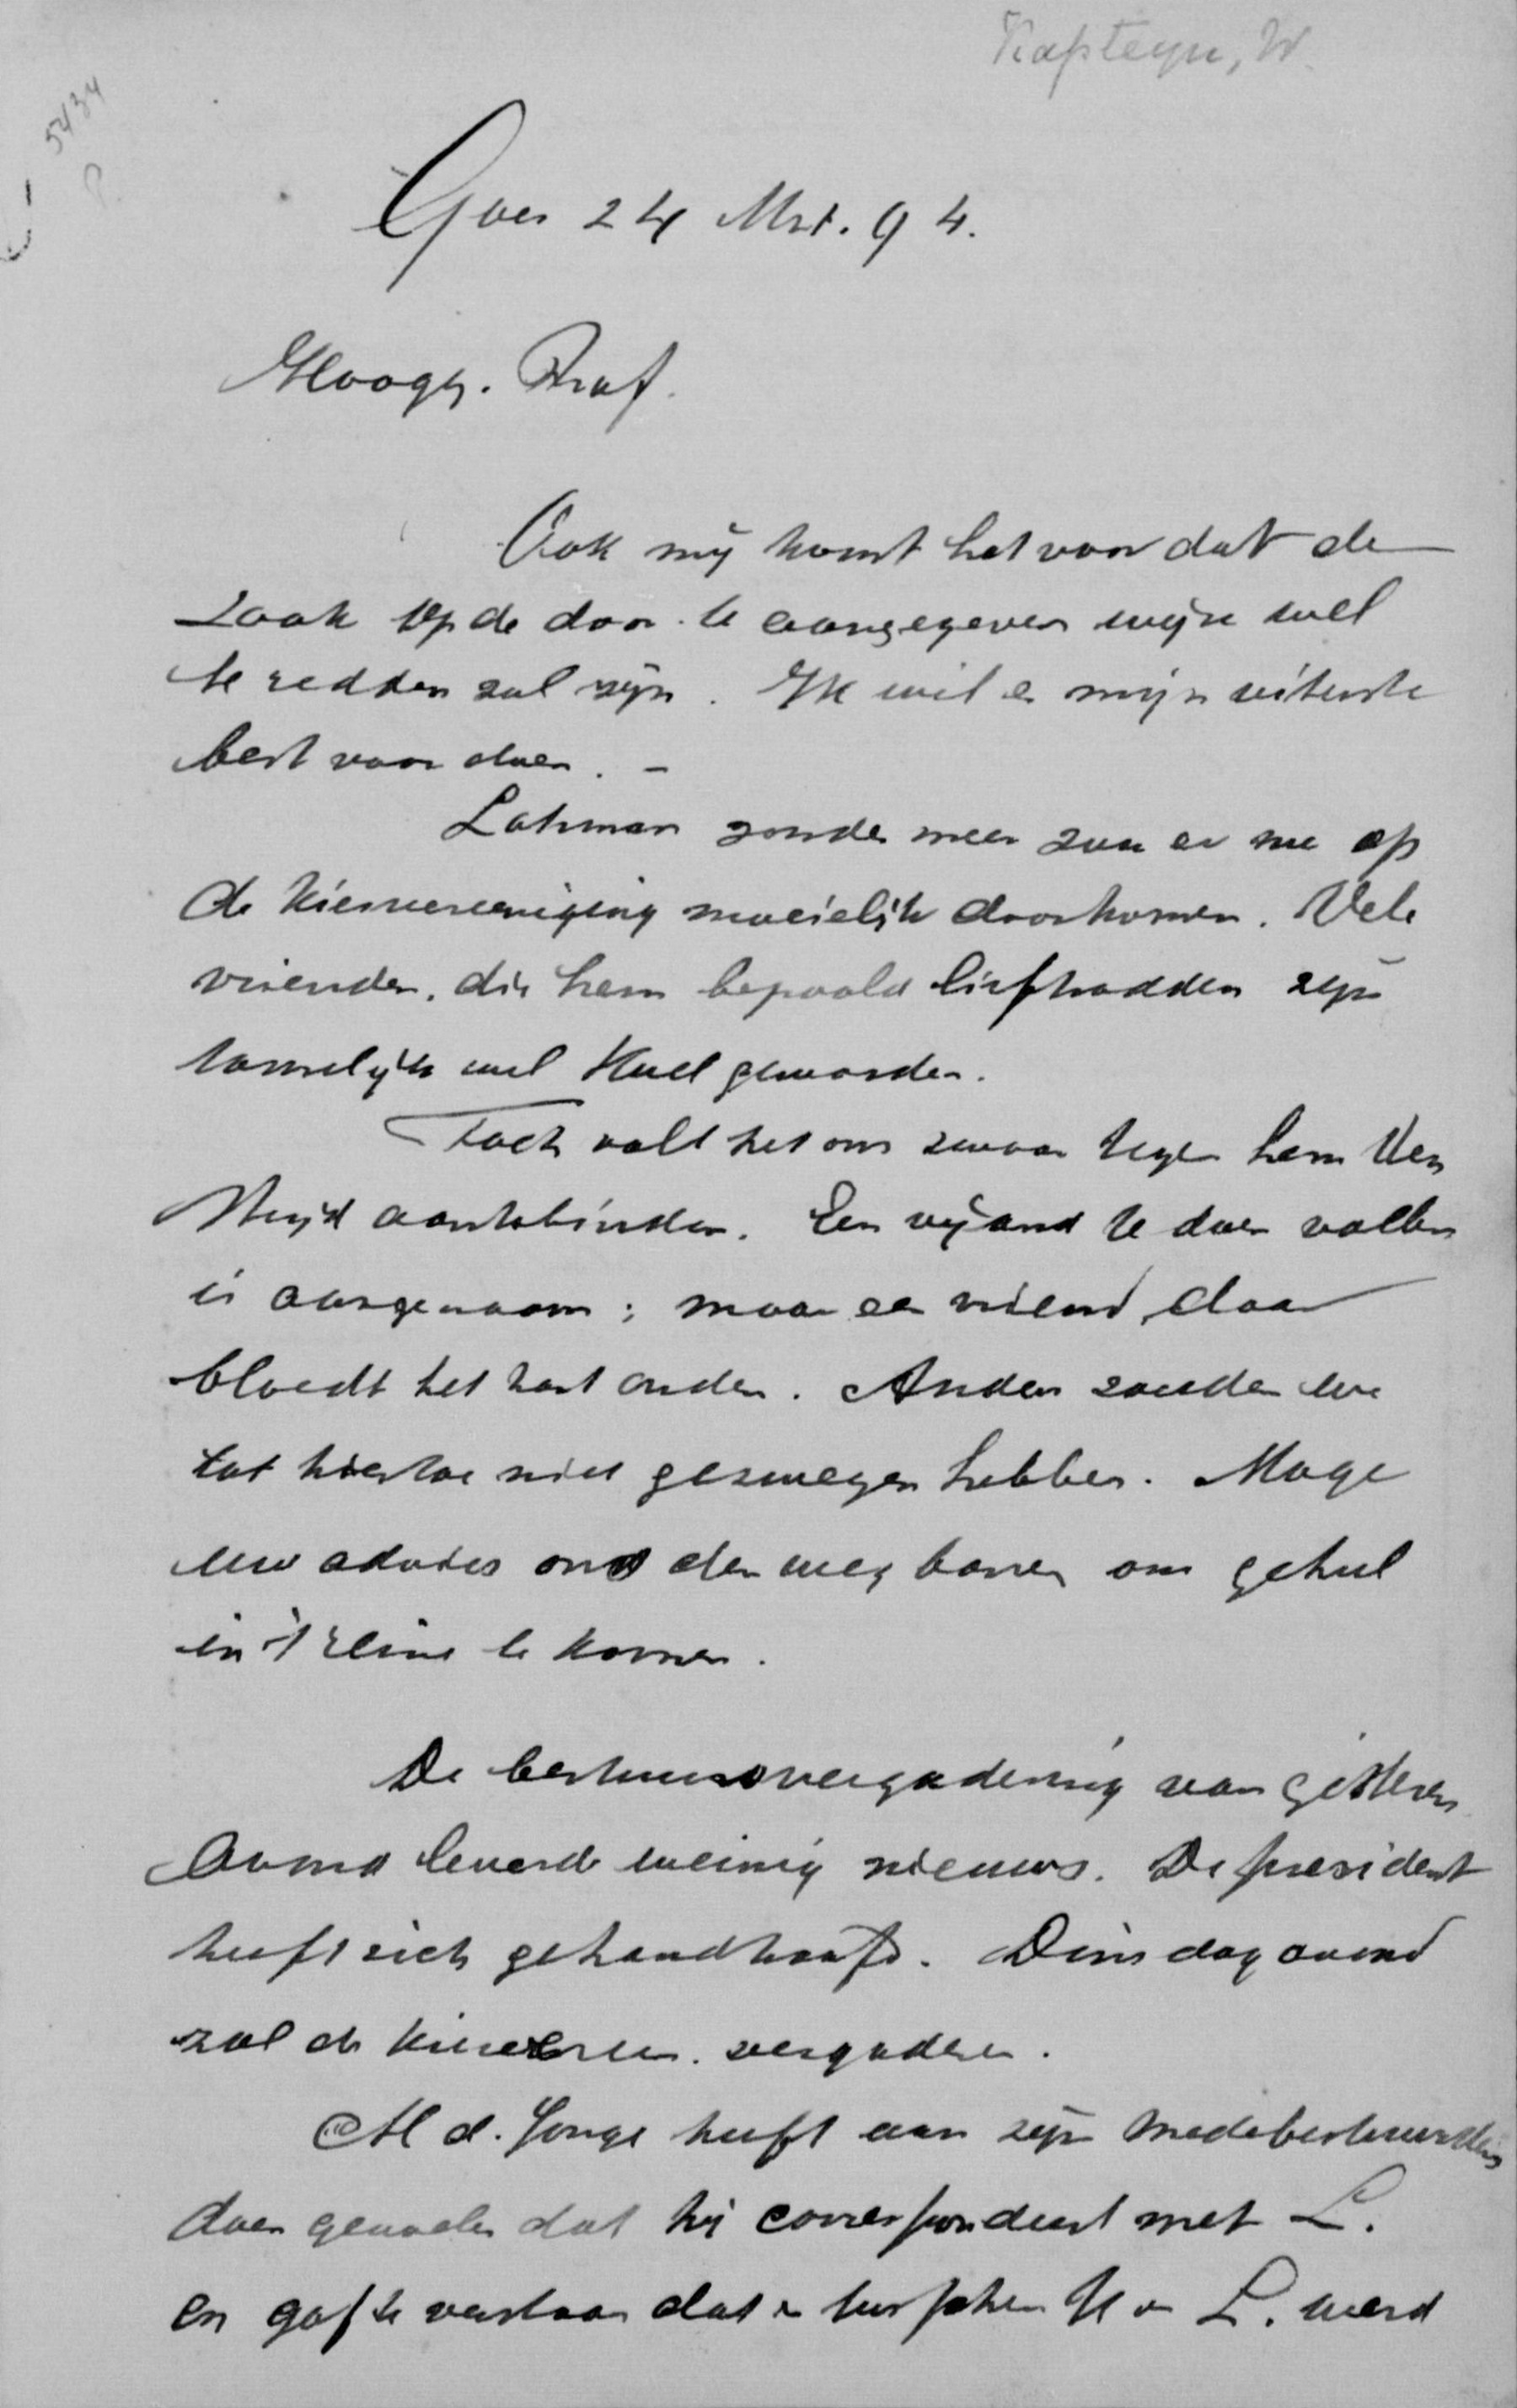 Kapteyn, W.
5434
Goes 24 Mrt. 94.
Hoogg. Prof.
Ook mij komt het voor dat de
zaak op de door U aangegeven wijze wel
te redden zal zijn. Ik wil er mijn uiterste
best voor doen. –
Lohman zonder meer zou er nu op
de kiesvereeniging moeielijk doorkomen. Vele
vrienden, die hem bepaald liefhadden zijn
tamelijk wel koel geworden.
Toch valt het ons zwaar tegen hem den
strijd aantebinden. Een vijand te doen vallen
is aangenaam; maar een vriend, daar
bloedt het hart onder. Anders zouden we
tot hiertoe niet gezwegen hebben. Moge
uw advies ons den weg banen om geheel
in 't reine te komen.
De bestuursvergadering van gisteren
avond leverde weinig nieuws. De president
heeft zich gehandhaafd. Dinsdag avond
zal de kiesvereen. vergaderen.
M d. Jonge heeft aan zijn medebestuurders
doen gevoelen dat hij correspondeert met L.
en gaf te verstaan dat er tusschen U en L. werd